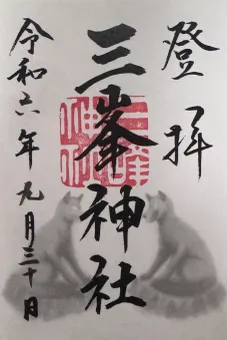 登拝
三峯神社
令和六年九月三十日